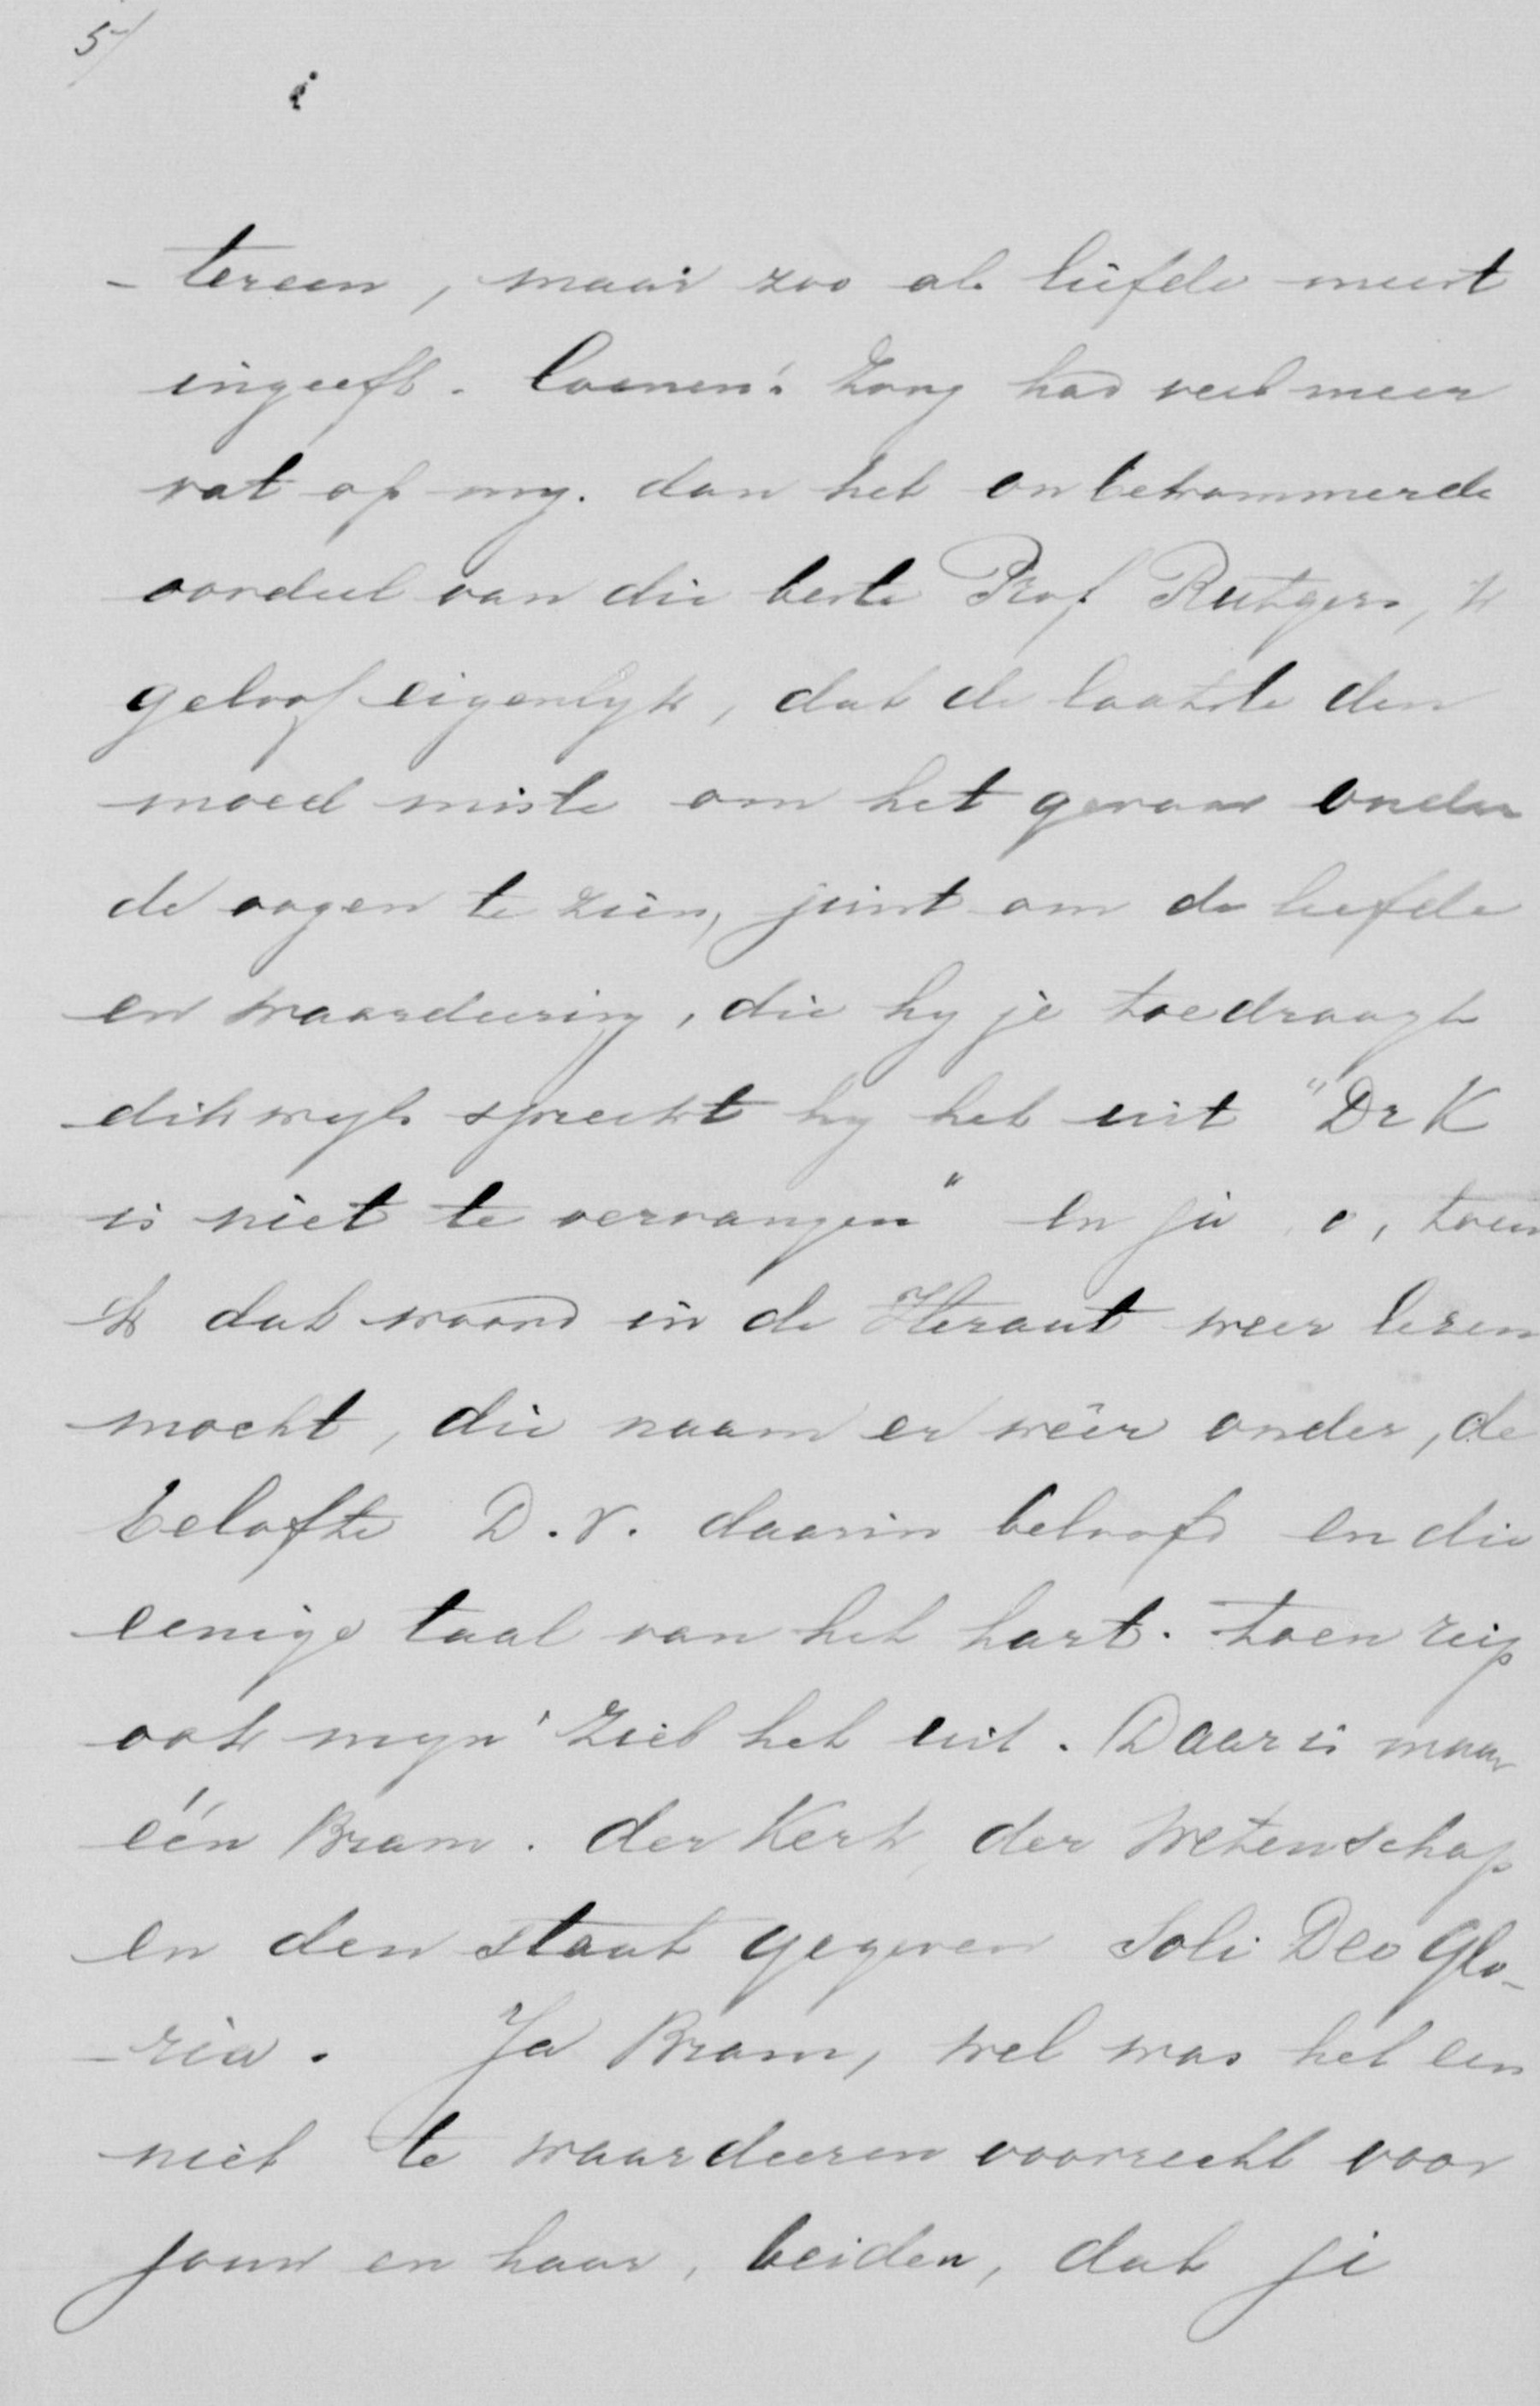 5/
- tereen, maar zoo als liefde meest
ingeeft. Coenen's zorg had veel meer
vat op my. dan het onbekommerde
oordeel van die beste Prof Rutgers, 'k
geloof eigenlyk, dat de laatste den
moed miste om het gevaar onder
de oogen te zien, juist om de liefde
en waardeering, die hy je toedraagt
dikwyls spreekt hy het uit "Dr K
is niet te vervangen" en ja o, toen
ik dat woord in de Heraut weer lezen
mocht, die naam er wêer onder, de
belofte D.V. daarin beloofd en die
eenige taal van het hart. toen riep
ook myn' ziel het uit. Daar is maar
één Bram. der Kerk, der Wetenschap
en den staat gegeven Soli Deo Glo-
-ria. Ja Bram, wel was het een
niet te waardeeren voorrecht voor
jouw en haar, beiden, dat je